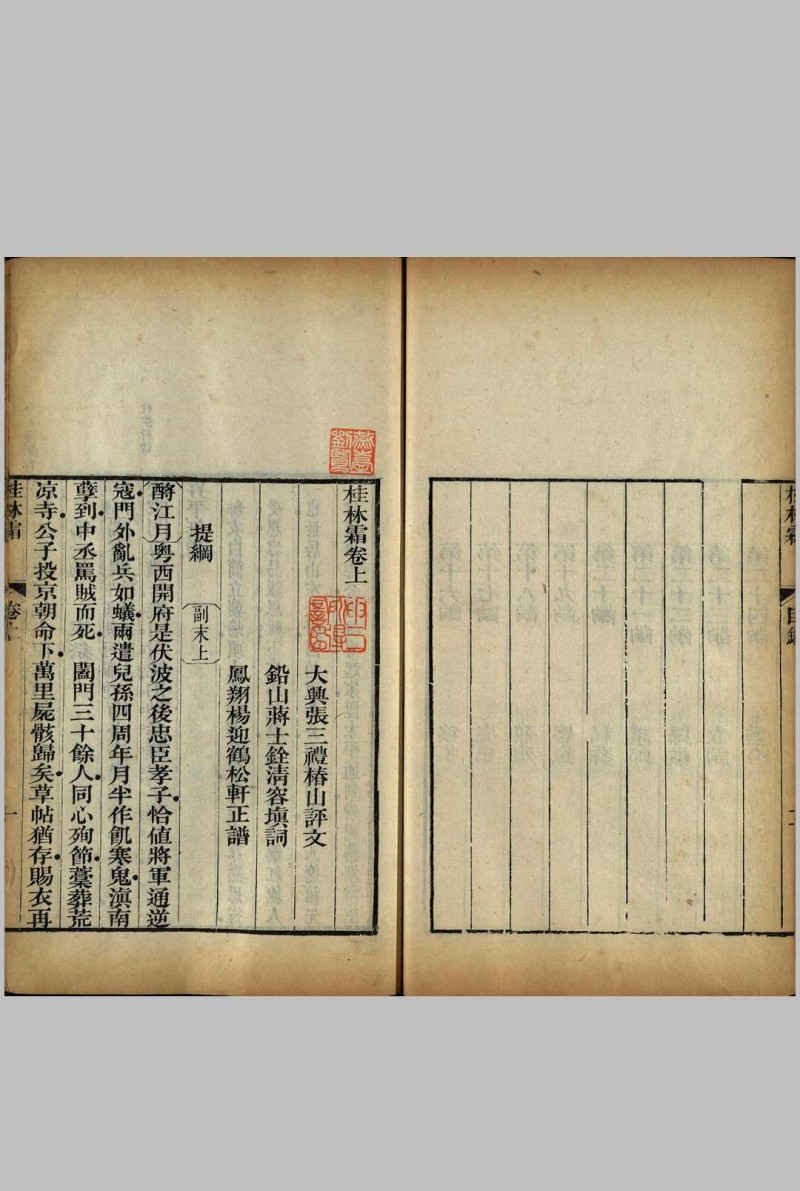 桂林霜
目錄
桂林霜卷上
大興張三禮椿山評文
鉛山蔣士銓清容塡詞
鳳翔楊迎鶴松軒正譜
提綱
副末上
酹江月粵西開府是伏波之後忠臣孝子恰値將軍通逆
寇門外亂兵如蟻兩遣兒孫四周年月半作飢寒鬼滇南
孽到中丞罵賊而死 闔門三十餘人同心殉節藁葬荒
凉寺公子投京朝命下萬里屍骸歸矣草帖猶存賜衣再
桂林霜
卷上
一